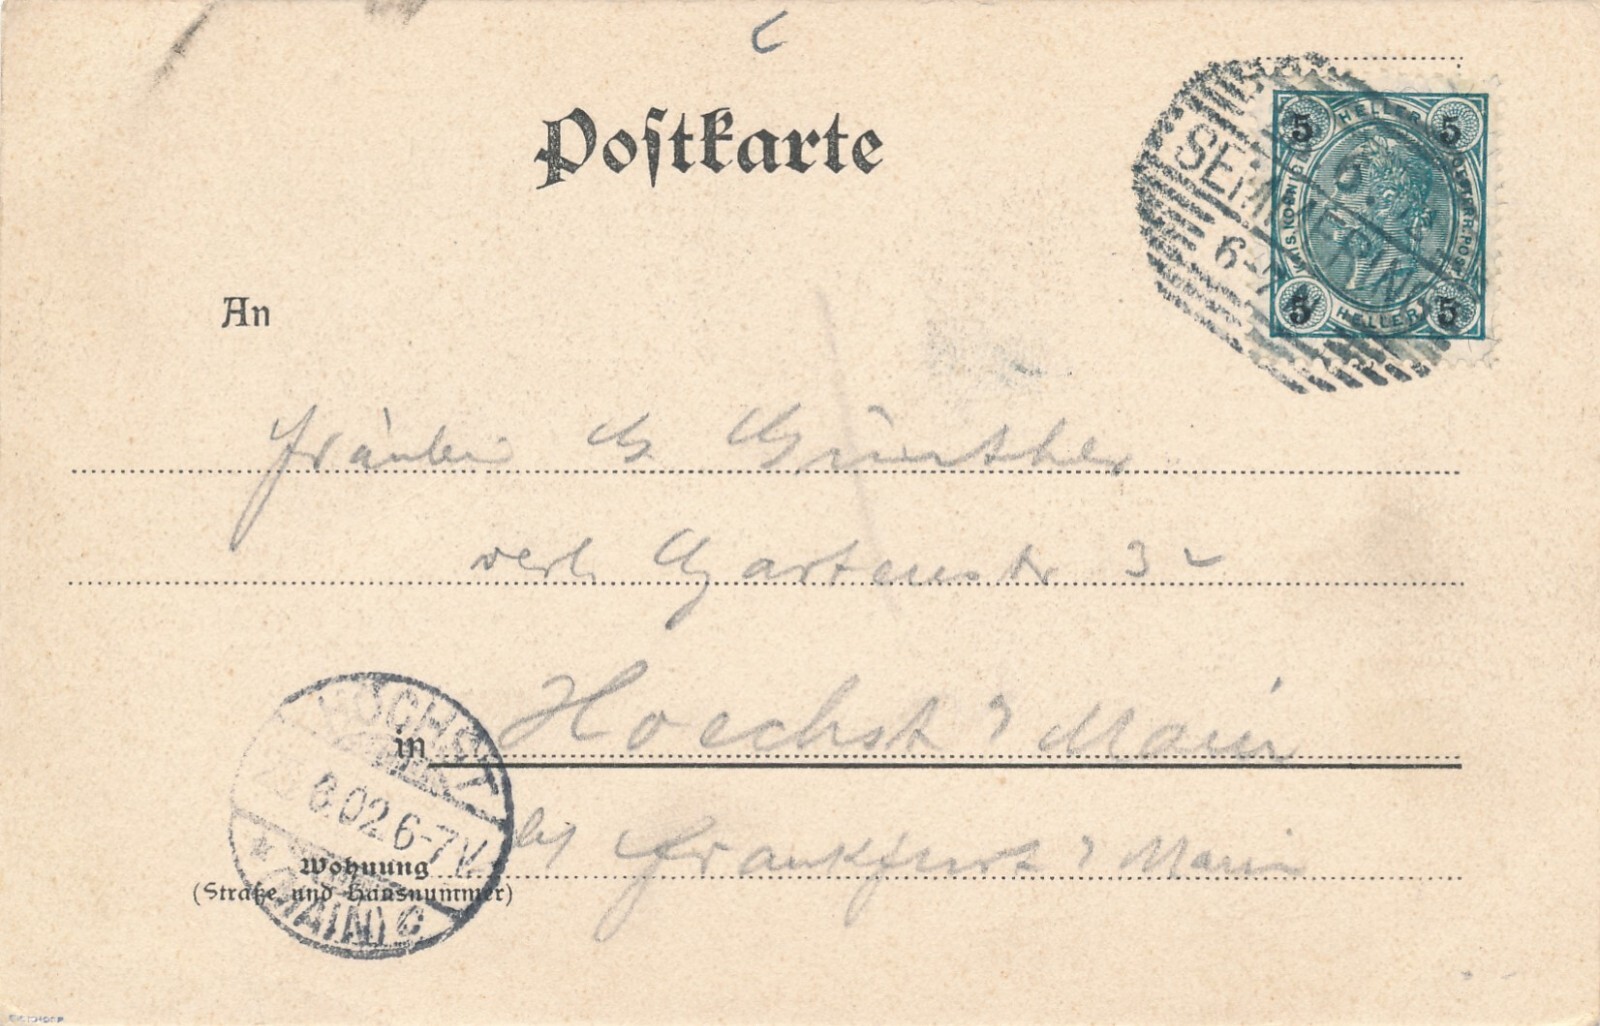 Postkarte
SEMMERING
6-7
HELLER
5 5
KAIS. KOENIGL. OESTERR. POST
5 5
HELLER
An
Fräulein G Günther
verl. Gartenstr 32
in Hoechst a Main
HÖCHST
6.02.6-7V.
* (MAIN) C
bei Frankfurt a Main
Wohnung
(Straße und Hausnummer)